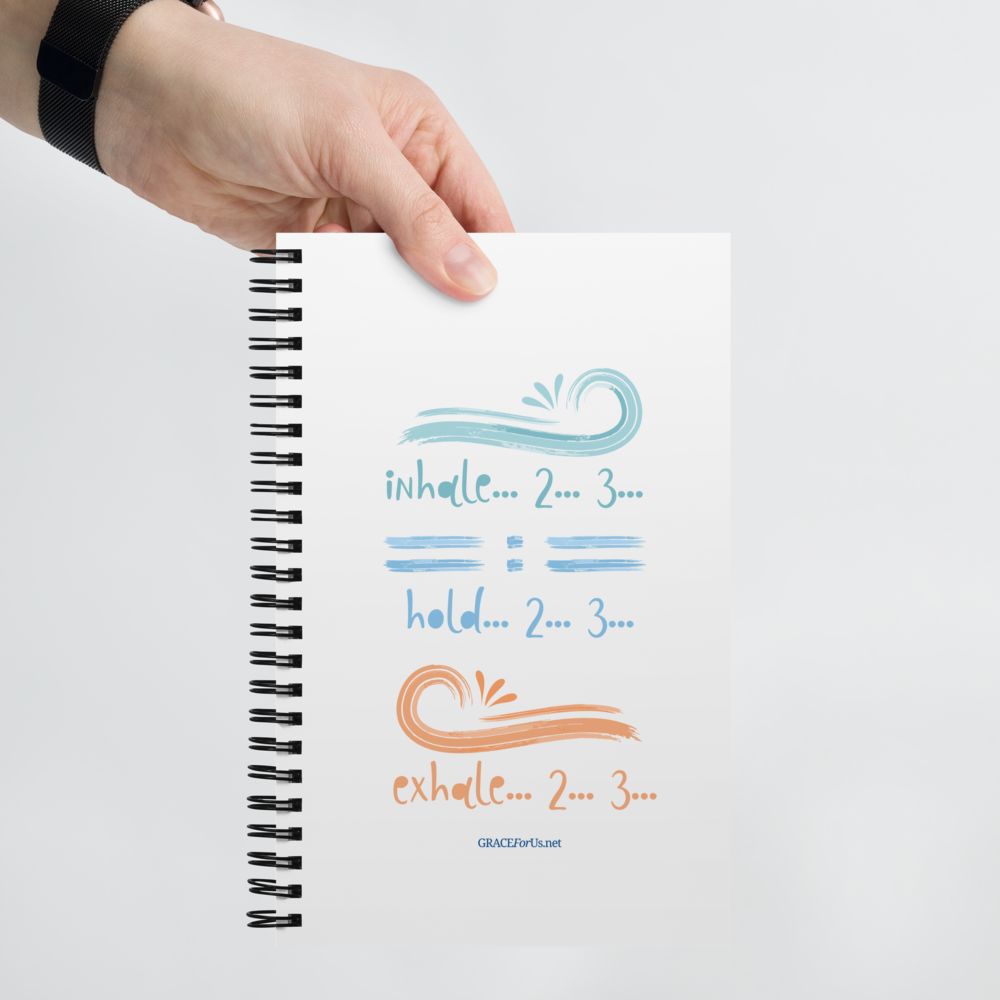 iNhale... 2... 3...
hold... 2... 3...
exhale... 2... 3...
GRACEForUs.net